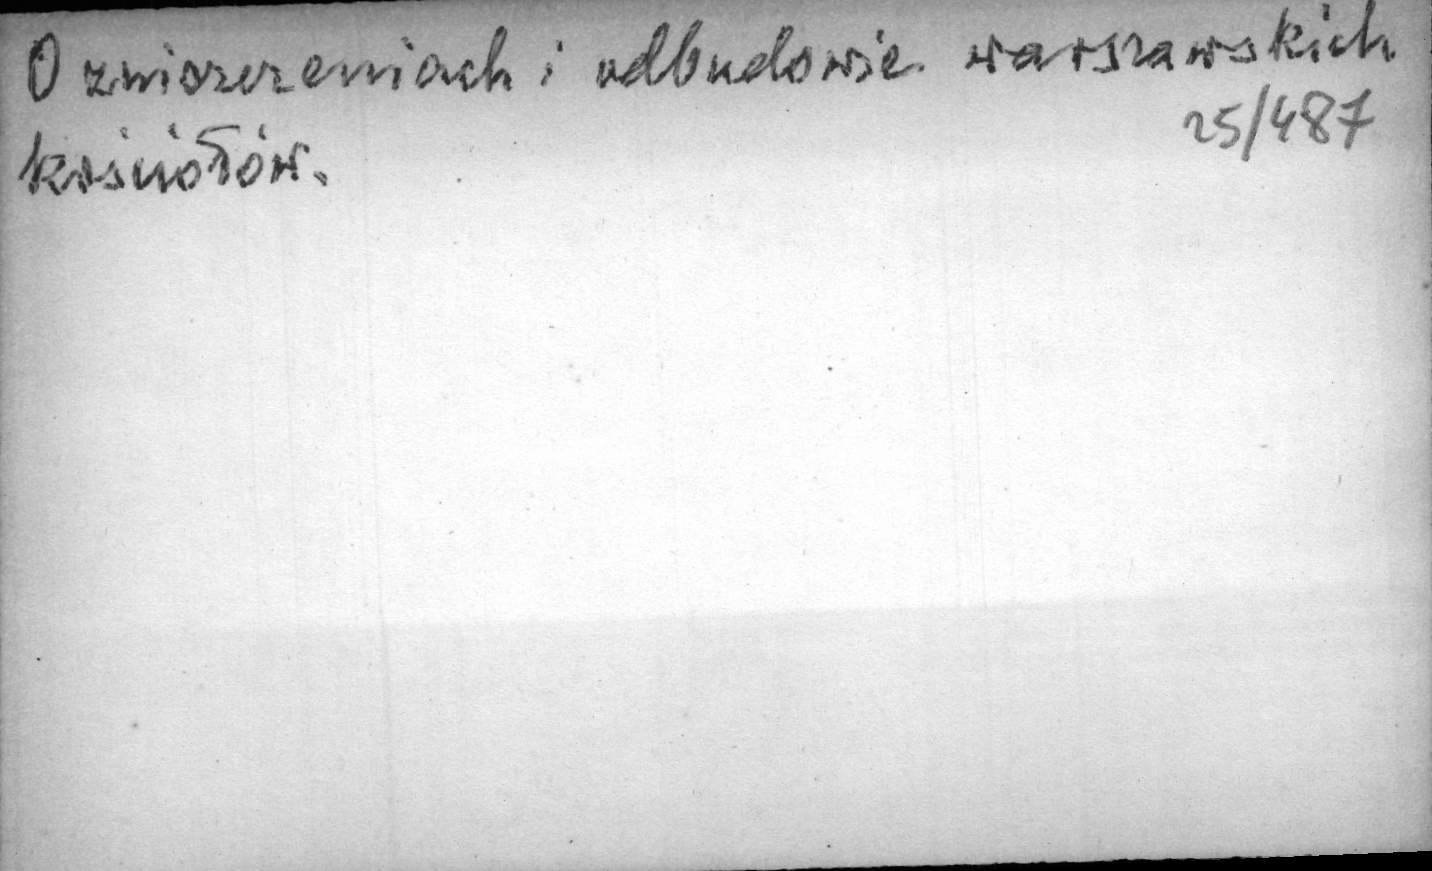 O zniszczeniach i odbudowie warszawskich
25/487
kościołów.